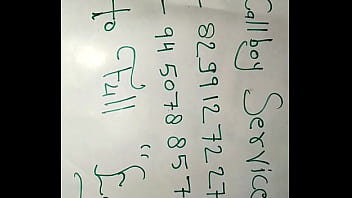 Callboy Service
- 8299127227
- 9450788577
to Full